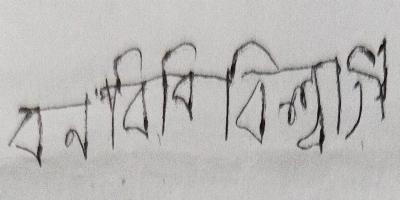 বনবিবি বিশ্বাস